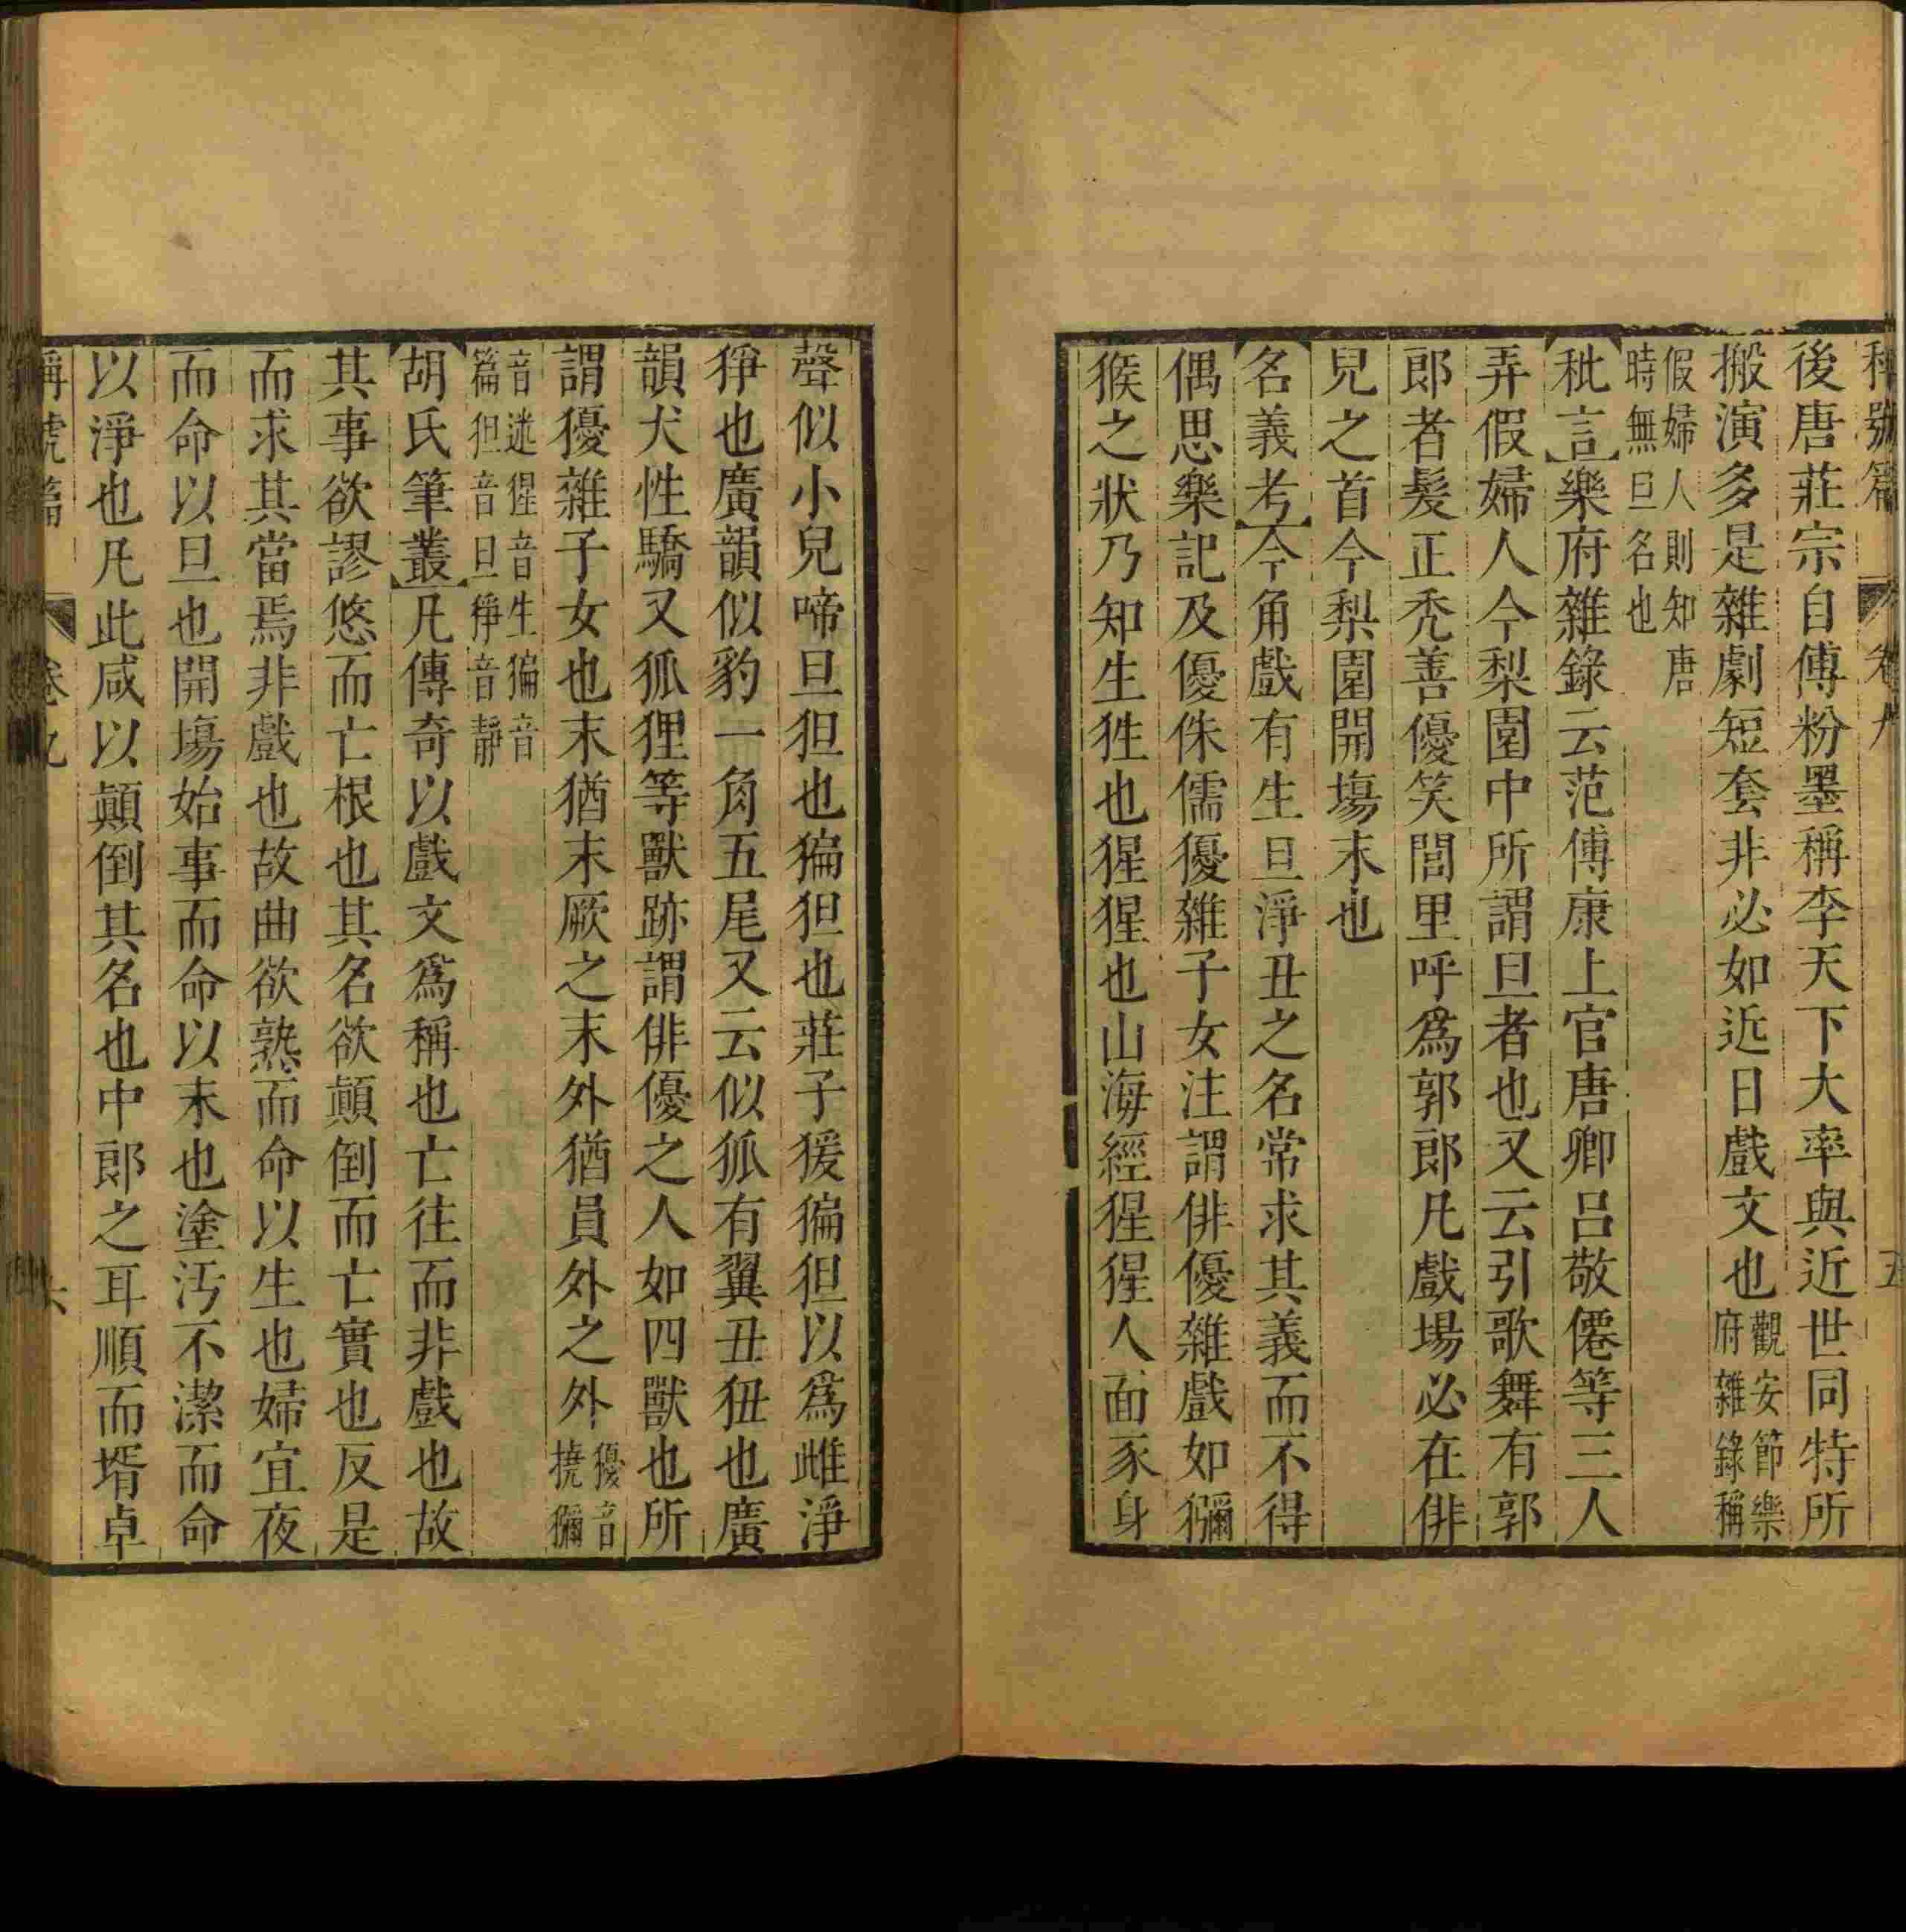 稱號篇 卷九 五
後唐莊宗自傅粉墨稱李天下大率與近世同特所
搬演多是雜劇短套非必如近日戲文也觀安節樂府雜錄稱
假婦人則知唐時無旦名也
秕言樂府雜錄云范傳康上官唐卿呂敬僊等三人
弄假婦人今梨園中所謂旦者也又云引歌舞有郭
郎者髮正禿善優笑閭里呼爲郭郎凡戲場必在俳
兒之首今梨園開場末也
名義考今角戲有生旦淨丑之名常求其義而不得
偶思樂記及優侏儒獶雜子女注謂俳優雜戲如獼
猴之狀乃知生狌也猩猩也山海經猩猩人面豕身
聲似小兒啼旦狚也猵狚也莊子猨猵狚以爲雌淨
猙也廣韻似豹一角五尾又云似狐有翼丑狃也廣
韻犬性驕又狐狸等獸跡謂俳優之人如四獸也所
謂獶雜子女也末猶末厥之末外猶員外之外獶音撓獼
音迷猩音生猵音篇狚音旦猙音靜
胡氏筆叢凡傳奇以戲文爲稱也亡往而非戲也故
其事欲謬悠而亡根也其名欲顛倒而亡實也反是
而求其當焉非戲也故曲欲熟而命以生也婦宜夜
而命以旦也開場始事而命以末也塗汚不潔而命
以淨也凡此咸以顛倒其名也中郎之耳順而壻卓
稱號篇 卷九 六